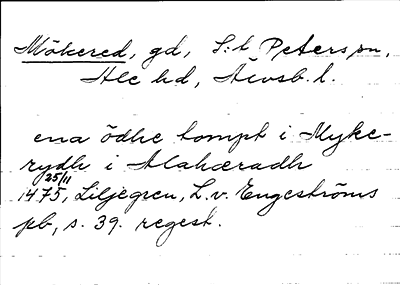 Mökered, gd, S:t Peters sn,
Ale hd, Älvsb. l.
ena ödhe tompt i Myke-
rydh i Alahæradh
25/11
1475, Liljegren, L. v. Engeströms
pb, s. 39. regest.